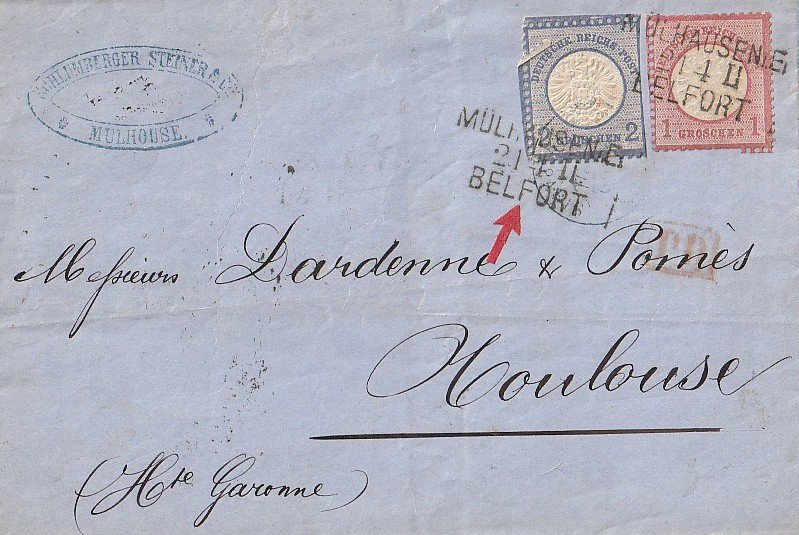 SCHLUMBERGER STEINER & Cie
MULHOUSE.
DEUTSCHE REICHS-POST
2 GROSCHEN 2
1 GROSCHEN 1
MÜLHAUSEN.E
4 II
BELFORT
MÜLHAUSEN.E
21 4 II
BELFORT
PD
Messieurs Dardenne & Pomès
Toulouse
(Hte Garonne)